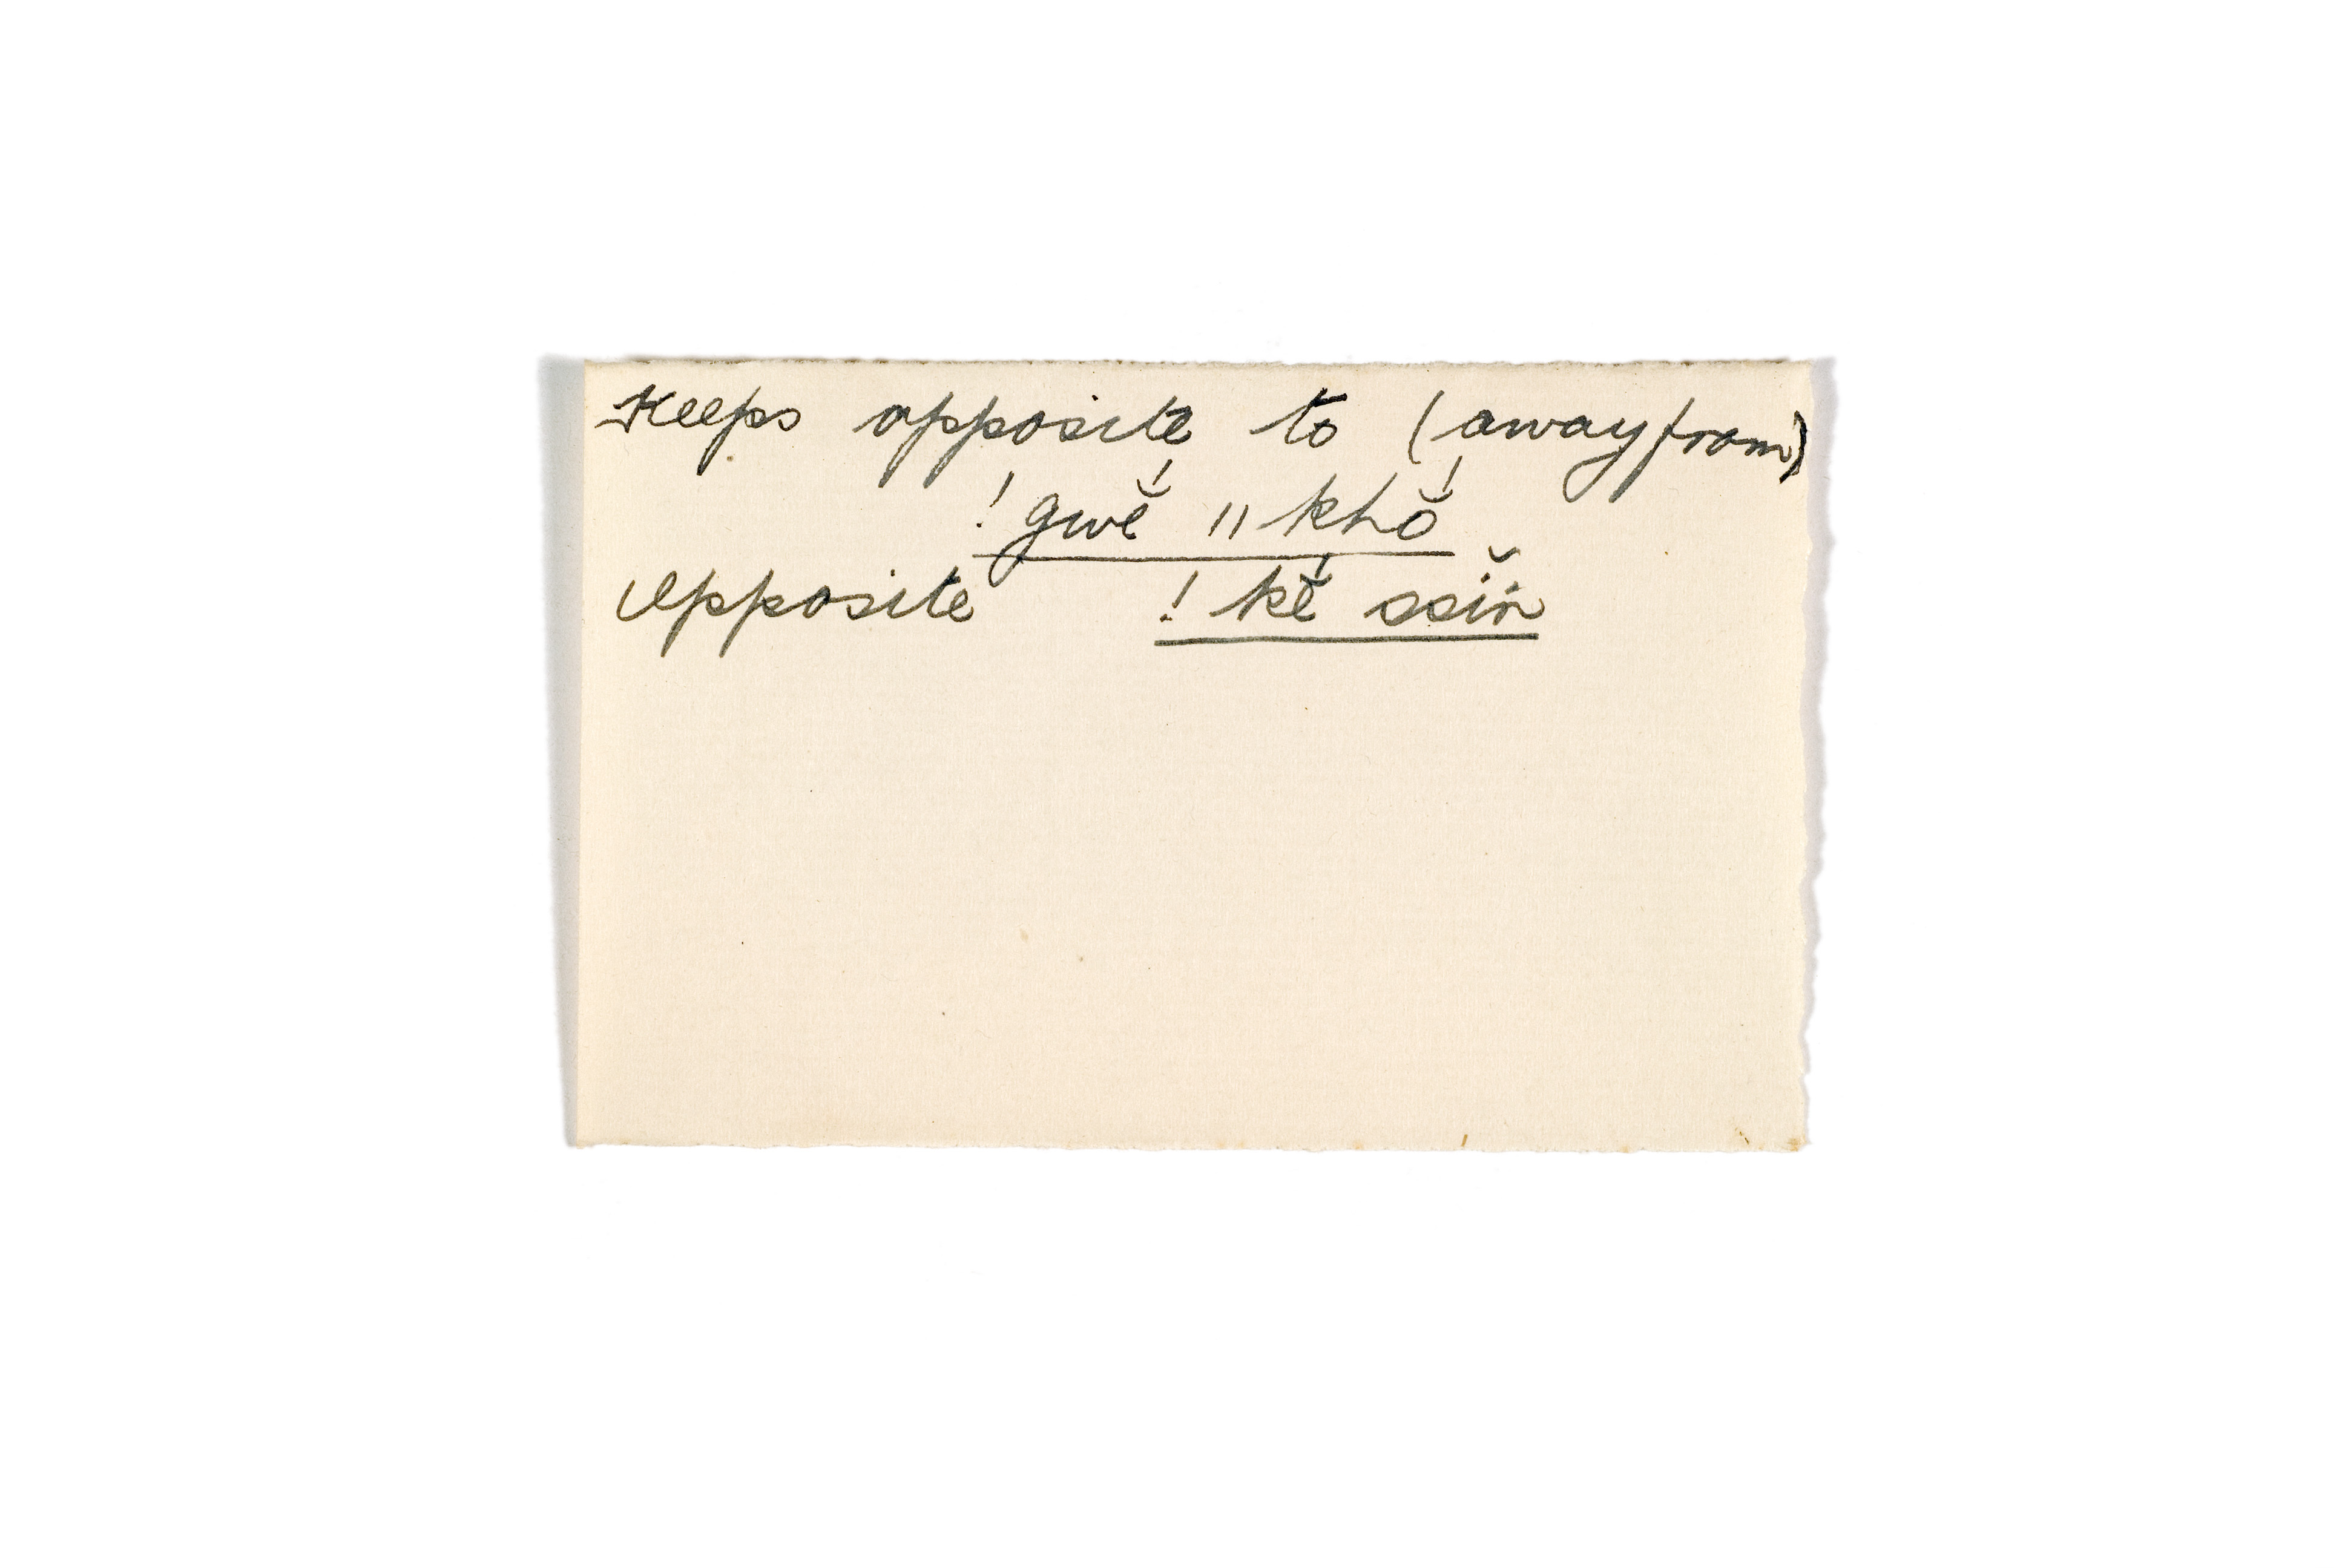 Keeps opposite to (away from)
!gwĕ́ ǁkhŏ́
Opposite !kĕ́ ssĭṅ